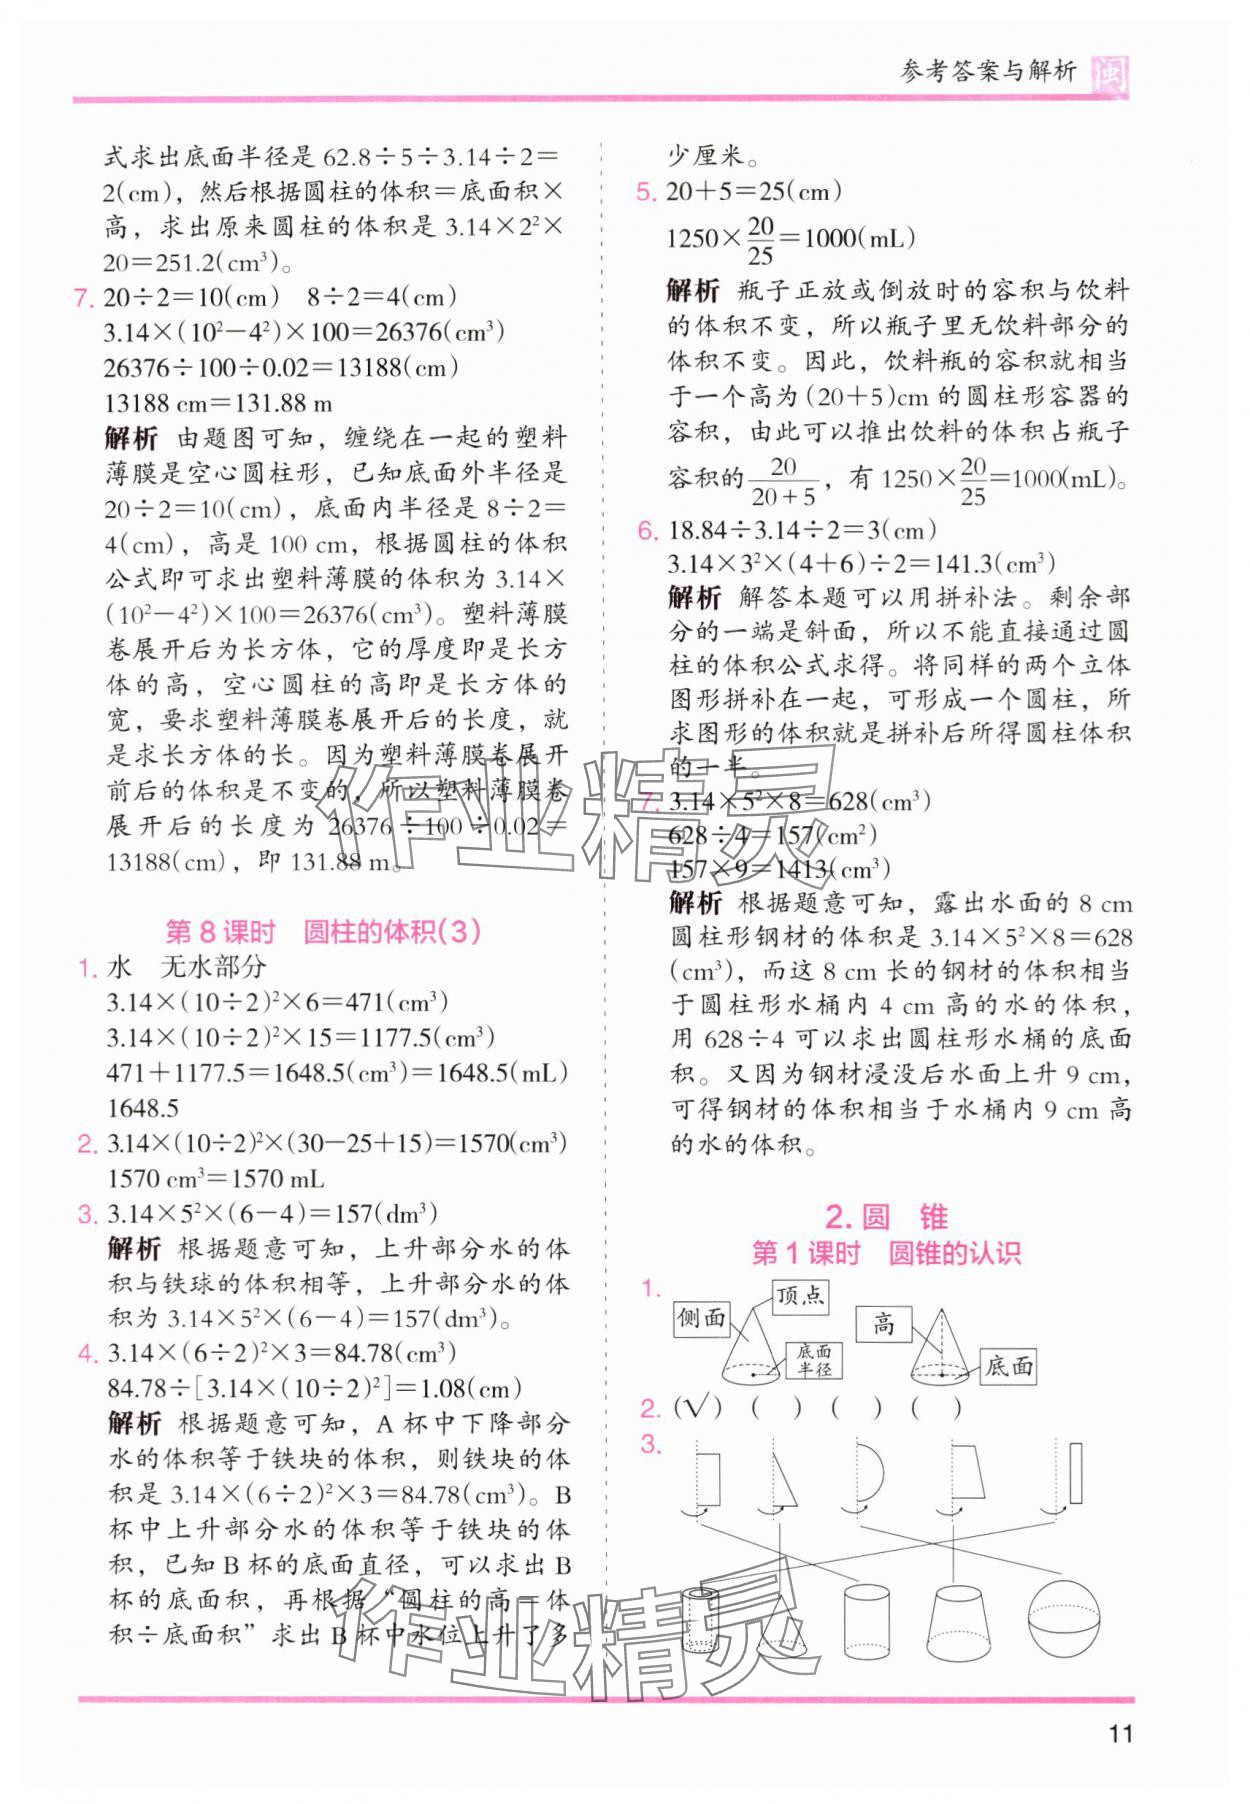 参考答案与解析 闽
式求出底面半径是 62.8÷5÷3.14÷2=
2(cm)，然后根据圆柱的体积=底面积×
高，求出原来圆柱的体积是 3.14×2²×
20=251.2(cm³)。
7. 20÷2=10(cm) 8÷2=4(cm)
3.14×(10²-4²)×100=26376(cm³)
26376÷100÷0.02=13188(cm)
13188 cm=131.88 m
解析 由题图可知，缠绕在一起的塑料
薄膜是空心圆柱形，已知底面外半径是
20÷2=10(cm)，底面内半径是 8÷2=
4(cm)，高是 100 cm，根据圆柱的体积
公式即可求出塑料薄膜的体积为 3.14×
(10²-4²)×100=26376(cm³)。塑料薄膜
卷展开后为长方体，它的厚度即是长方
体的高，空心圆柱的高即是长方体的
宽，要求塑料薄膜卷展开后的长度，就
是求长方体的长。因为塑料薄膜卷展开
前后的体积是不变的，所以塑料薄膜卷
展开后的长度为 26376÷100÷0.02=
13188(cm)，即 131.88 m。
第 8 课时 圆柱的体积(3)
1. 水 无水部分
3.14×(10÷2)²×6=471(cm³)
3.14×(10÷2)²×15=1177.5(cm³)
471+1177.5=1648.5(cm³)=1648.5(mL)
1648.5
2. 3.14×(10÷2)²×(30-25+15)=1570(cm³)
1570 cm³=1570 mL
3. 3.14×5²×(6-4)=157(dm³)
解析 根据题意可知，上升部分水的体
积与铁球的体积相等，上升部分水的体
积为 3.14×5²×(6-4)=157(dm³)。
4. 3.14×(6÷2)²×3=84.78(cm³)
84.78÷[3.14×(10÷2)²]=1.08(cm)
解析 根据题意可知，A 杯中下降部分
水的体积等于铁块的体积，则铁块的体
积是 3.14×(6÷2)²×3=84.78(cm³)。B
杯中上升部分水的体积等于铁块的体
积，已知 B 杯的底面直径，可以求出 B
杯的底面积，再根据“圆柱的高=体
积÷底面积”求出 B 杯中水位上升了多
少厘米。
5. 20+5=25(cm)
1250×20/25=1000(mL)
解析 瓶子正放或倒放时的容积与饮料
的体积不变，所以瓶子里无饮料部分的
体积不变。因此，饮料瓶的容积就相当
于一个高为(20+5)cm 的圆柱形容器的
容积，由此可以推出饮料的体积占瓶子
容积的 20/(20+5)，有 1250×20/25=1000(mL)。
6. 18.84÷3.14÷2=3(cm)
3.14×3²×(4+6)÷2=141.3(cm³)
解析 解答本题可以用拼补法。剩余部
分的一端是斜面，所以不能直接通过圆
柱的体积公式求得。将同样的两个立体
图形拼补在一起，可形成一个圆柱，所
求图形的体积就是拼补后所得圆柱体积
的一半。
7. 3.14×5²×8=628(cm³)
628÷4=157(cm²)
157×9=1413(cm³)
解析 根据题意可知，露出水面的 8 cm
圆柱形钢材的体积是 3.14×5²×8=628
(cm³)，而这 8 cm 长的钢材的体积相当
于圆柱形水桶内 4 cm 高的水的体积，
用 628÷4 可以求出圆柱形水桶的底面
积。又因为钢材浸没后水面上升 9 cm，
可得钢材的体积相当于水桶内 9 cm 高
的水的体积。
2. 圆 锥
第 1 课时 圆锥的认识
1. 侧面 顶点 底面半径 高 底面
2. (√) ( ) ( ) ( )
3.
作业精灵
作业精灵
11